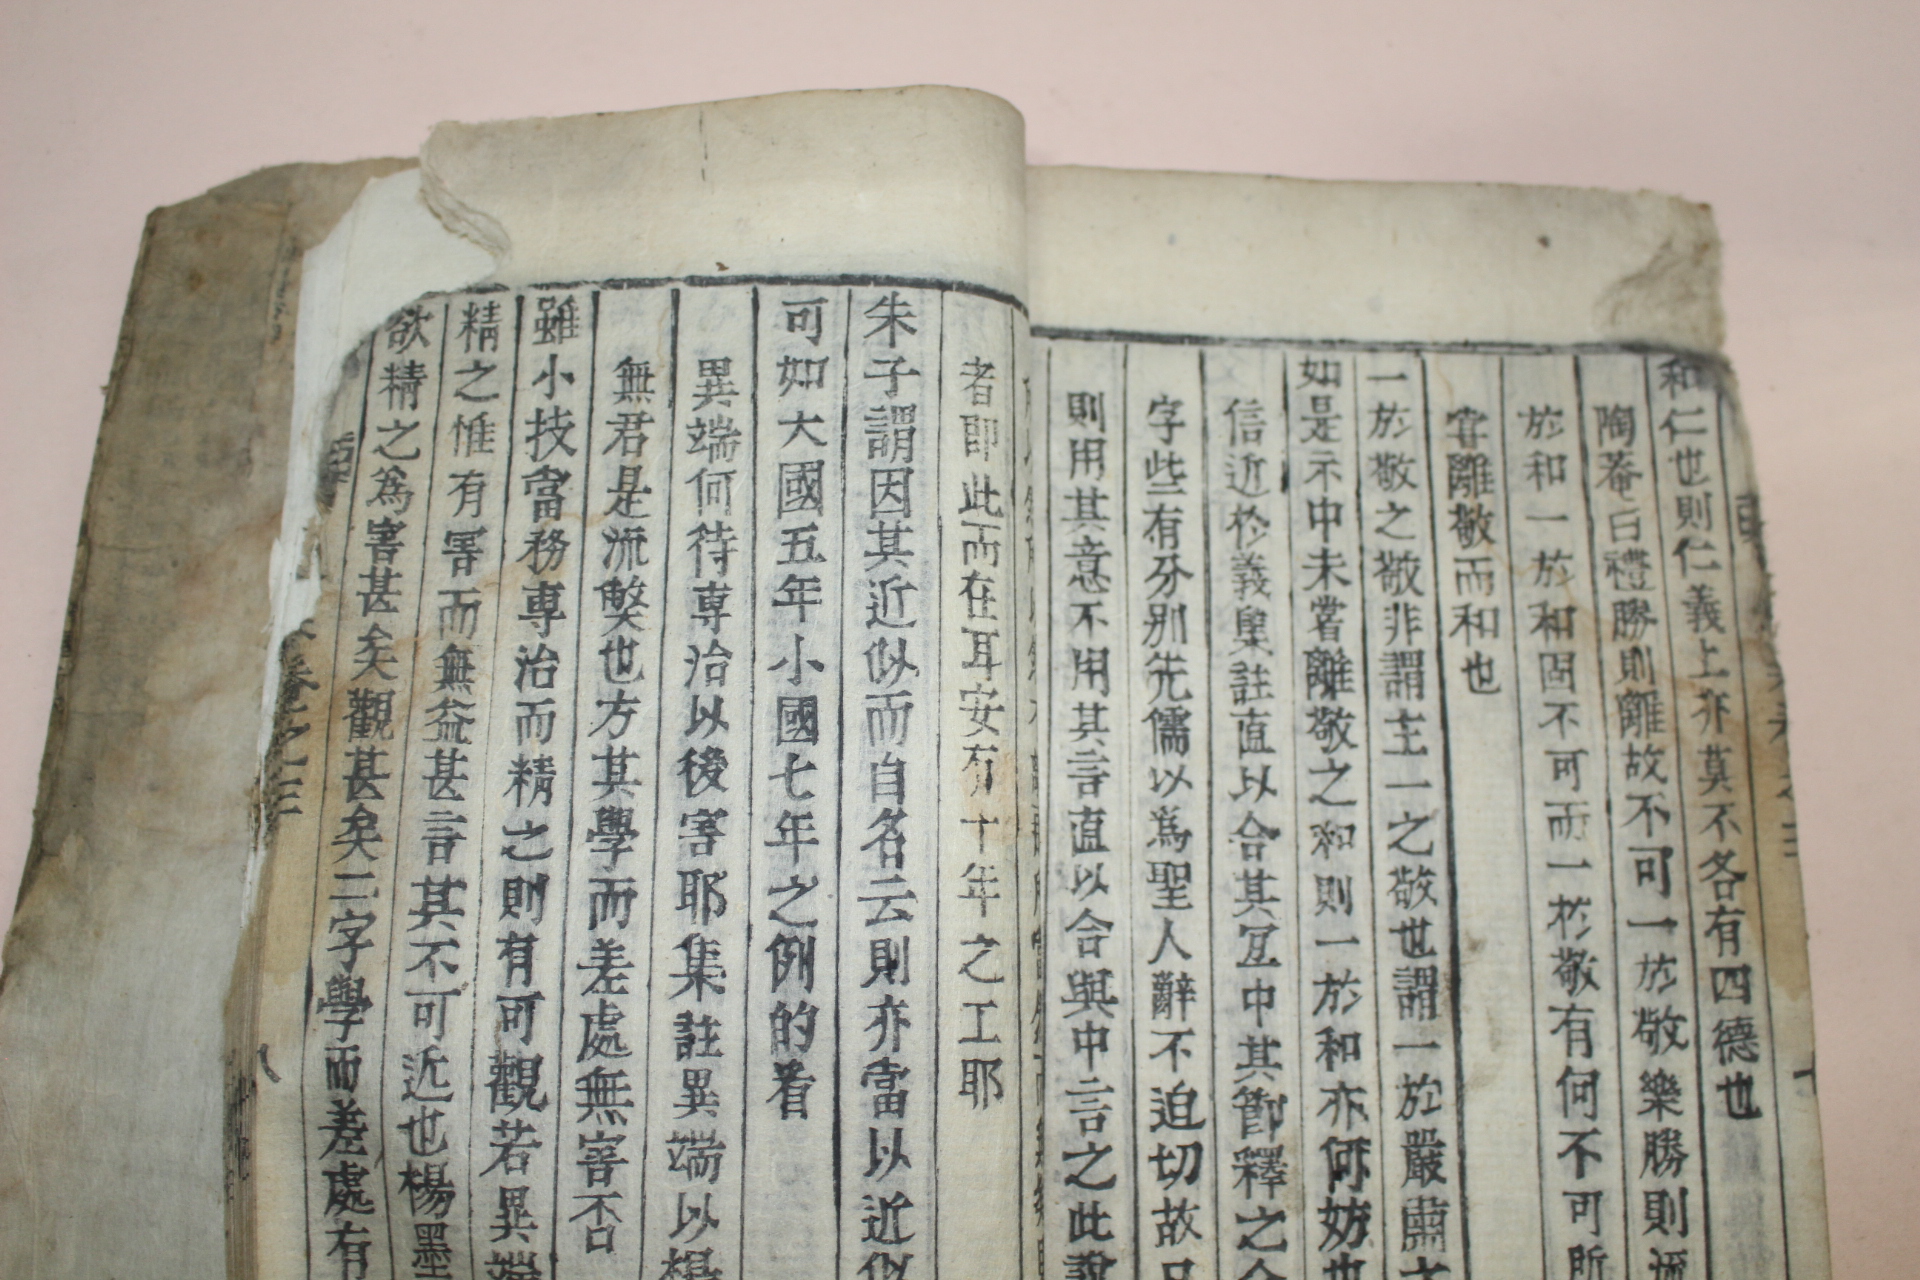 和仁也則仁義上亦莫不各有四德也
陶菴曰禮勝則離故不可一於敬樂勝則流
於和一於和固不可而一於敬有何不可所
離敬而和也
一於敬之敬非謂主一之敬也謂一於嚴肅
如是示中未嘗離敬之和則一於和亦何妨也
信近於義集註直以合其宜中其節釋之
字些有分別先儒以爲聖人辭不迫切故只
則用其意不用其言直以合與中言之此說
者卽此而在耳安有十年之工耶
朱子謂因其近似而自名云則亦當以近似
可如大國五年小國七年之例的看
異端何待專治以後害耶集註異端以楊
無君是流弊也方其學而差處無害否
雖小技當務專治而精之則有可觀若異端
精之惟有害而無益甚言其不可近也楊墨
欲精之爲害甚矣觀甚矣二字學而差處有
卷之三
八